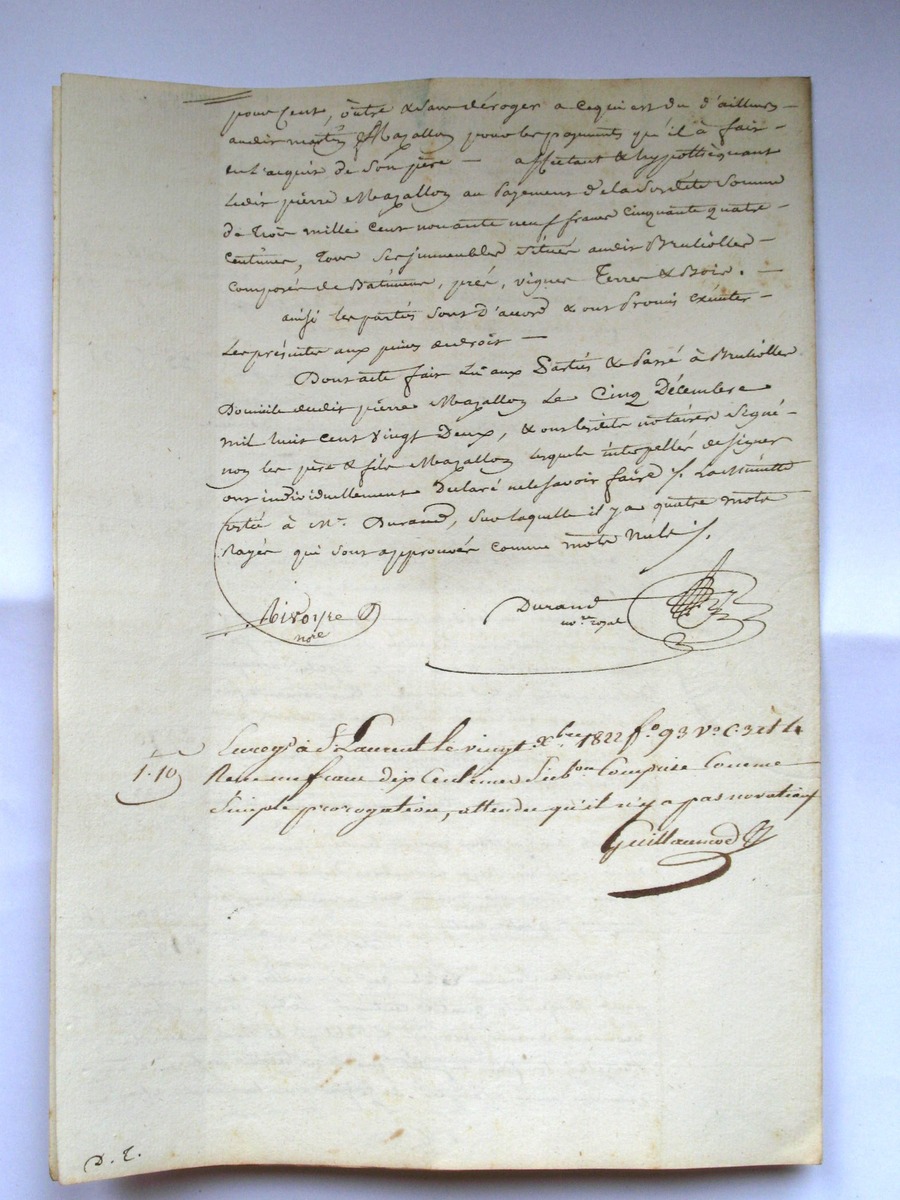 pour Cent, outre & sans déroger a ce qui est du d'ailleurs —
audit martin Mazallon pour les payments qu'il à fait —
en l'acquit de Son père — affectant & hypothèquant
Ledit pierre Mazallon au Payement de la Susdite Somme
de Trois mille Cent nonante neuf francs Cinquante quatre
Centimes, Tous Ses jmmeubles Situés audit Brulioller —
Composés de Batiments, prés, vignes Terres & Bois. —
ainsi les partiés Sont d'accord & ont Promis éxécuter —
Les présentes aux peines de droit —
Dont acte fait Lû aux Partiés & Passé à Brulioller
Domicile dudit pierre Mazallon Le Cinq Décembre
mil huit cent vingt Deux, & ont lesdits notaires Signé —
non les père & fils Mazallon lesquels interpellés de signer
ont individuellement Déclaré ne le Savoir faire /. La Minutte
restée à Mr. Durand, Sur laquelle il y a quatre mots
Rayés qui sont approuvés comme mots Nuls /.
Rivoyre
nore
Durand
nore royal
Enregé à St Laurent le vingt Xbre 1822 fo 93 Vo C 3 et 4
1.10
Reçu un franc dix Centimes Subon Comprise Comme
Simple prorogation, attendu qu'il n'y a pas novation
Guillaumod
D. T.